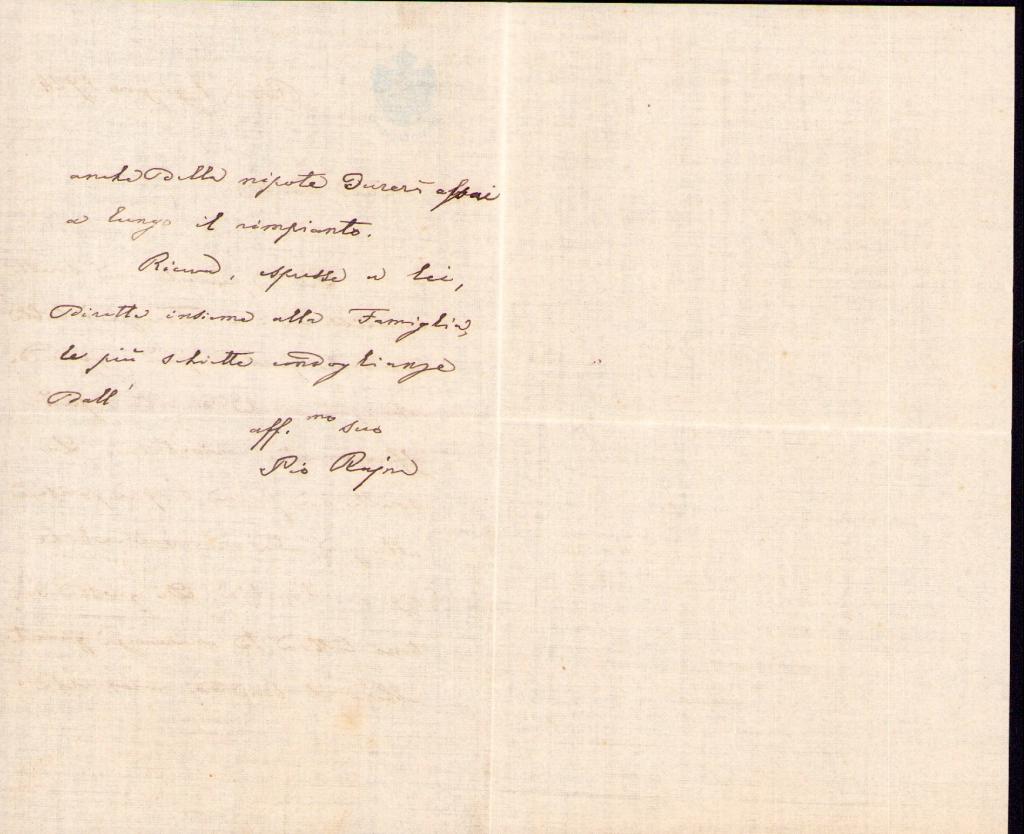 anche della nipote durerà assai
a lungo il rimpianto.
Riceva, espresse a lei,
dirette insieme alla Famiglia,
le più schiette condoglianze
dall'
aff.mo suo
Pio Rajna